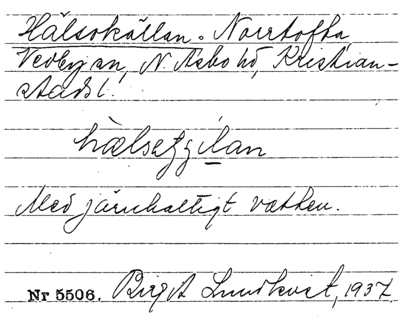 Hälsokällan. Norrtofta
Vedby sn, N. Åsbo hd, Kristian-
stads l.
Med järnhaltigt vatten.
Nr 5506. Birgit Lundkvist, 1937.